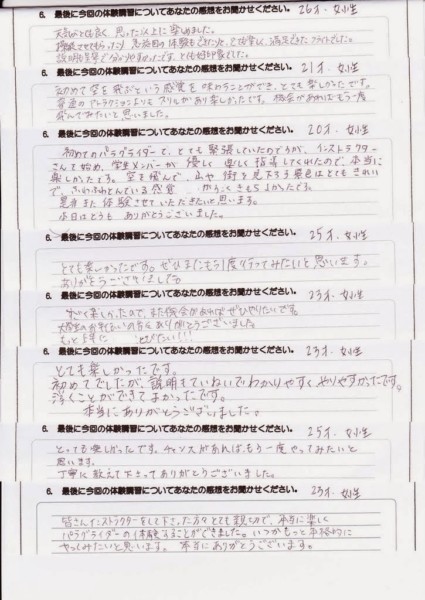 6. 最後に今回の体験講習についてあなたの感想をお聞かせください。 26才 女性
天気がとても良く、思った以上に楽しめました。
操縦させてもらったり 急旋回の体験もできたりと、とても楽しく、満足できたフライトでした。
説明も丁寧で分かりやすかったです。とても好印象でした。
6. 最後に今回の体験講習についてあなたの感想をお聞かせください。 21才 女性
初めて空を飛ぶという感覚を味わうことができ、とても楽しかったです。
普通のアトラクションよりもスリルがあり楽しかったです。機会があればもう一度
飛んでみたいと思いました。
6. 最後に今回の体験講習についてあなたの感想をお聞かせください。 20才 女性
初めてのパラグライダーで、とても緊張していたのですが、インストラクター
さんて始め、学生メンバーが優しく 楽しく指導してくれたので、本当に
楽しかったです。空を飛んで、山や 街を見下ろす景色はとてもきれい
で、ふわふわとんでいる感覚 がすごくきもちよかったです。
是非また 体験させていただきたいと思います。
本日はどうも ありがとうございました。
6. 最後に今回の体験講習についてあなたの感想をお聞かせください。 25才 女性
とても楽しかったです。ぜひまたもう1度行ってみたいと思います。
ありがとうございました。
6. 最後に今回の体験講習についてあなたの感想をお聞かせください。 23才 女性
すごく楽しかったので、また機会があればぜひやりたいです。
大学生のお手伝いの方も ありがとうございました。
もっと 上手に とびたい!!!
6. 最後に今回の体験講習についてあなたの感想をお聞かせください。 23才 女性
とても楽しかったです。
初めてでしたが、説明もていねいでわかりやすく やりやすかったです。
浮くことができてよかったです。
本当にありがとうございました。
6. 最後に今回の体験講習についてあなたの感想をお聞かせください。 25才 女性
とっても楽しかったです。チャンスがあれば、もう一度やってみたいと
思います。
丁寧に教えて下さってありがとうございました。
6. 最後に今回の体験講習についてあなたの感想をお聞かせください。 23才 女性
皆さんインストラクターをして下さった方々とても親切で、本当に楽しく
パラグライダーの体験することができました。いつかもっと本格的に
やってみたいと思います。本当にありがとうございます。